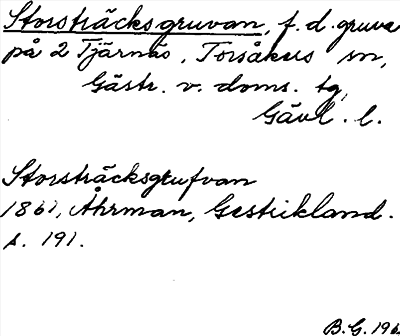 Storsträcksgruvan, f. d. gruva
på 2 Tjärnäs, Torsåkers sn,
Gästr. v. doms. tg,
Gävl. l.
Storsträcksgrufvan
1861, Åhrman, Gestrikland.
s. 191.
B.G.